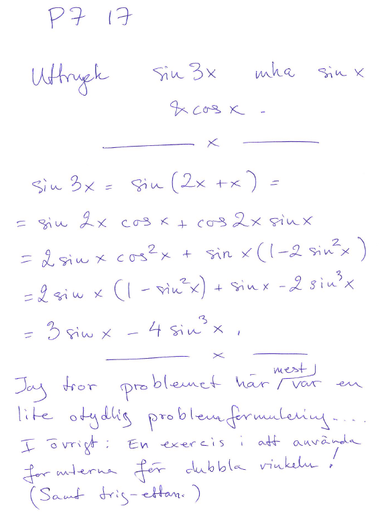 P7 17
Uttryck sin 3x mha sin x
& cos x.
x
sin 3x = sin (2x + x) =
= sin 2x cos x + cos 2x sin x
= 2 sin x cos²x + sin x (1 - 2 sin²x)
= 2 sin x (1 - sin²x) + sin x - 2 sin³x
= 3 sin x - 4 sin³x.
x
Jag tror problemet här mest var en
lite otydlig problemformulering....
I övrigt: En exercis i att använda
formlerna för dubbla vinkeln!
(Samt trig-ettan.)